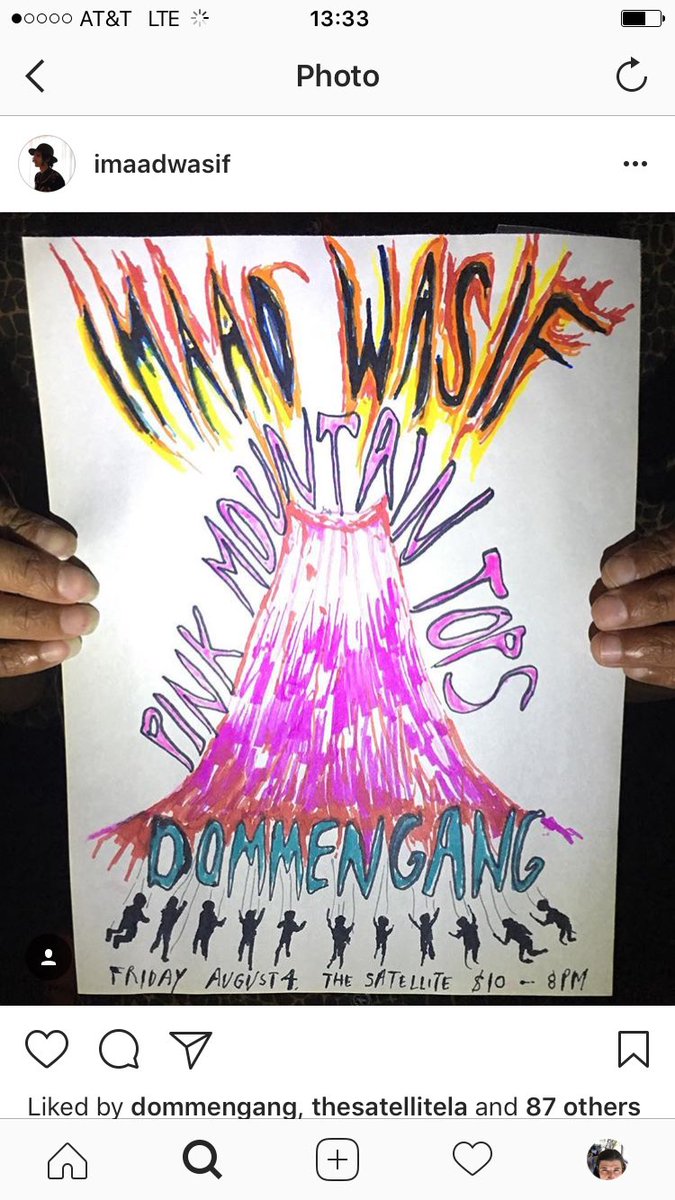 AT&T LTE 13:33
Photo
imaadwasif
IMAAD WASIF
PINK MOUNTAIN TOPS
DOMMENGANG
FRIDAY AUGUST 4. THE SATELLITE $10 - 8PM
Liked by dommengang, thesatellitela and 87 others